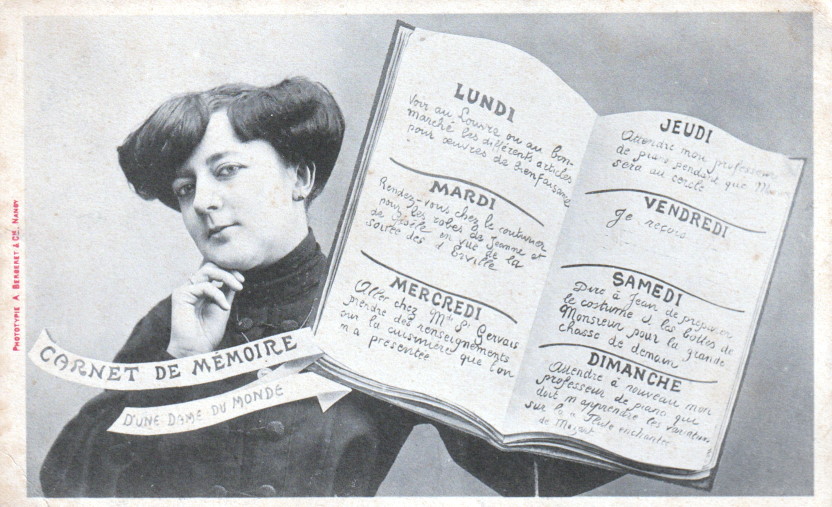 LUNDI
Voir au Louvre ou au bon-
marché les différents articles
pour œuvres de bienfaisance
MARDI
Rendez-vous chez le couturier
pour les robes de Jeanne et
de Gisèle en vue de la
soirée des d'Orville
MERCREDI
Aller chez Mme St Gervais
prendre des renseignements
sur la cuisinière que l'on
m'a présentée
JEUDI
Attendre mon professeur
de piano pendant que
sera au cercle
VENDREDI
Je reçois
SAMEDI
Dire à Jean de préparer
le costume & les bottes de
Monsieur pour la grande
chasse de demain
DIMANCHE
Attendre à nouveau mon
professeur de piano qui
doit m'apprendre les variations
sur la "Flute enchantée
de Mozart
CARNET DE MÉMOIRE
D'UNE DAME DU MONDE
PHOTOTYPIE A. BERGERET & Cie, NANCY